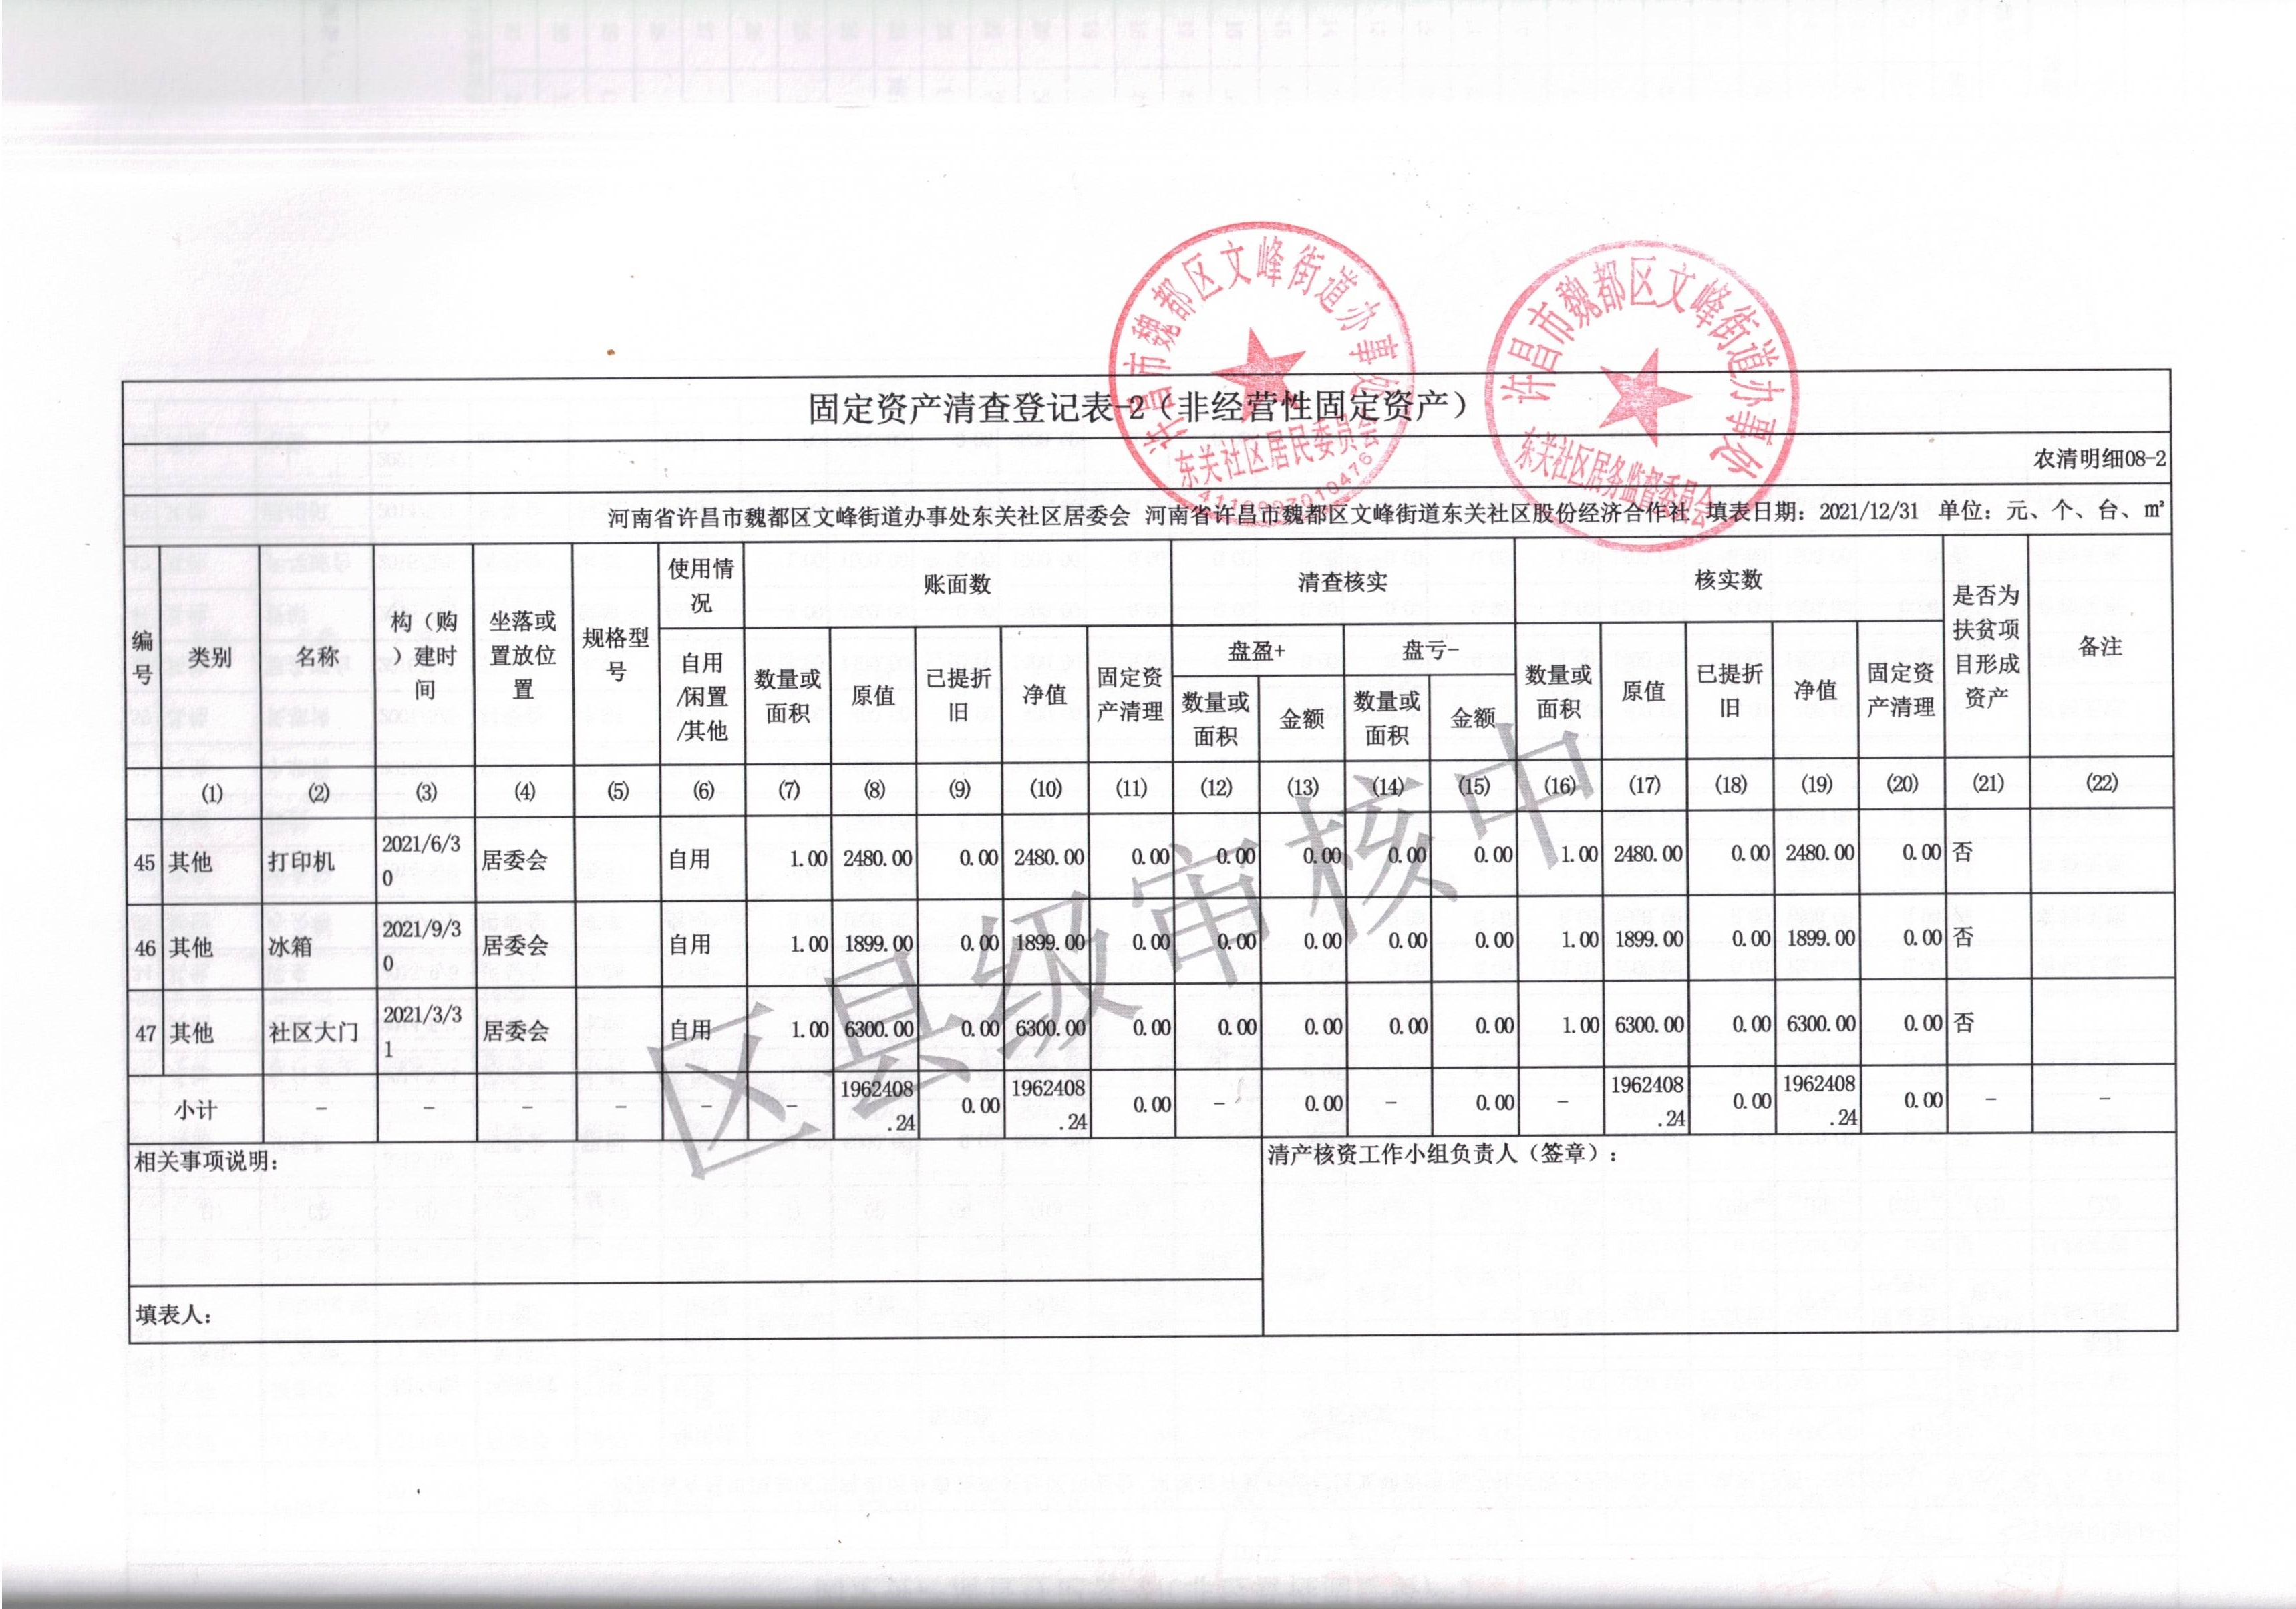 固定资产清查登记表-2（非经营性固定资产）
农清明细08-2
河南省许昌市魏都区文峰街道办事处东关社区居委会 河南省许昌市魏都区文峰街道东关社区股份经济合作社 填表日期：2021/12/31 单位：元、个、台、㎡
编号 类别 名称 构（购）建时间 坐落或置放位置 规格型号 使用情况 账面数 清查核实 核实数 是否为扶贫项目形成资产 备注
自用/闲置/其他 数量或面积 原值 已提折旧 净值 固定资产清理 盘盈+ 盘亏- 数量或面积 原值 已提折旧 净值 固定资产清理
数量或面积 金额 数量或面积 金额
(1) (2) (3) (4) (5) (6) (7) (8) (9) (10) (11) (12) (13) (14) (15) (16) (17) (18) (19) (20) (21) (22)
45 其他 打印机 2021/6/30 居委会 自用 1.00 2480.00 0.00 2480.00 0.00 0.00 0.00 0.00 0.00 1.00 2480.00 0.00 2480.00 0.00 否
46 其他 冰箱 2021/9/30 居委会 自用 1.00 1899.00 0.00 1899.00 0.00 0.00 0.00 0.00 0.00 1.00 1899.00 0.00 1899.00 0.00 否
47 其他 社区大门 2021/3/31 居委会 自用 1.00 6300.00 0.00 6300.00 0.00 0.00 0.00 0.00 0.00 1.00 6300.00 0.00 6300.00 0.00 否
小计 － － － － － － 1962408.24 0.00 1962408.24 0.00 － 0.00 － 0.00 － 1962408.24 0.00 1962408.24 0.00 － －
相关事项说明：
清产核资工作小组负责人（签章）：
填表人：
区县级审核中
许昌市魏都区文峰街道办事处
东关社区居民委员会
许昌市魏都区文峰街道办事处
东关社区居务监督委员会